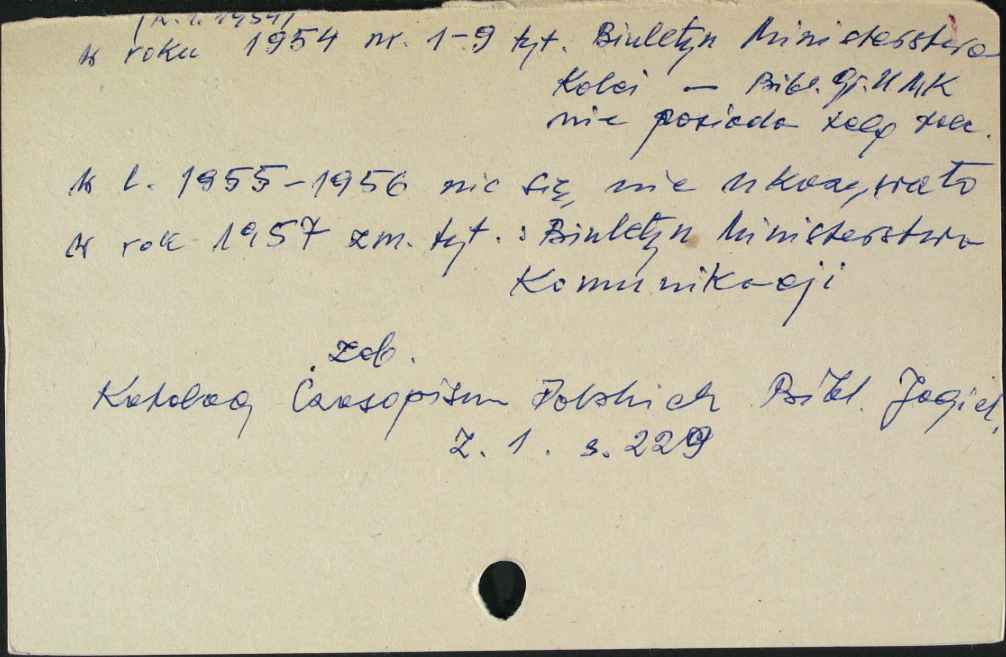 w roku 1954 nr. 1-9 tyt. Biuletyn Ministerstwa
Kolei — Bibl. Gł. UMK
nie posiada
w l. 1955-1956 nic się nie ukazywało
w rok 1957 zm. tyt. : Biuletyn Ministerstwa
Komunikacji
zob.
Katalog Czasopism Polskich Bibl. Jagiel.
Z. 1. s. 229